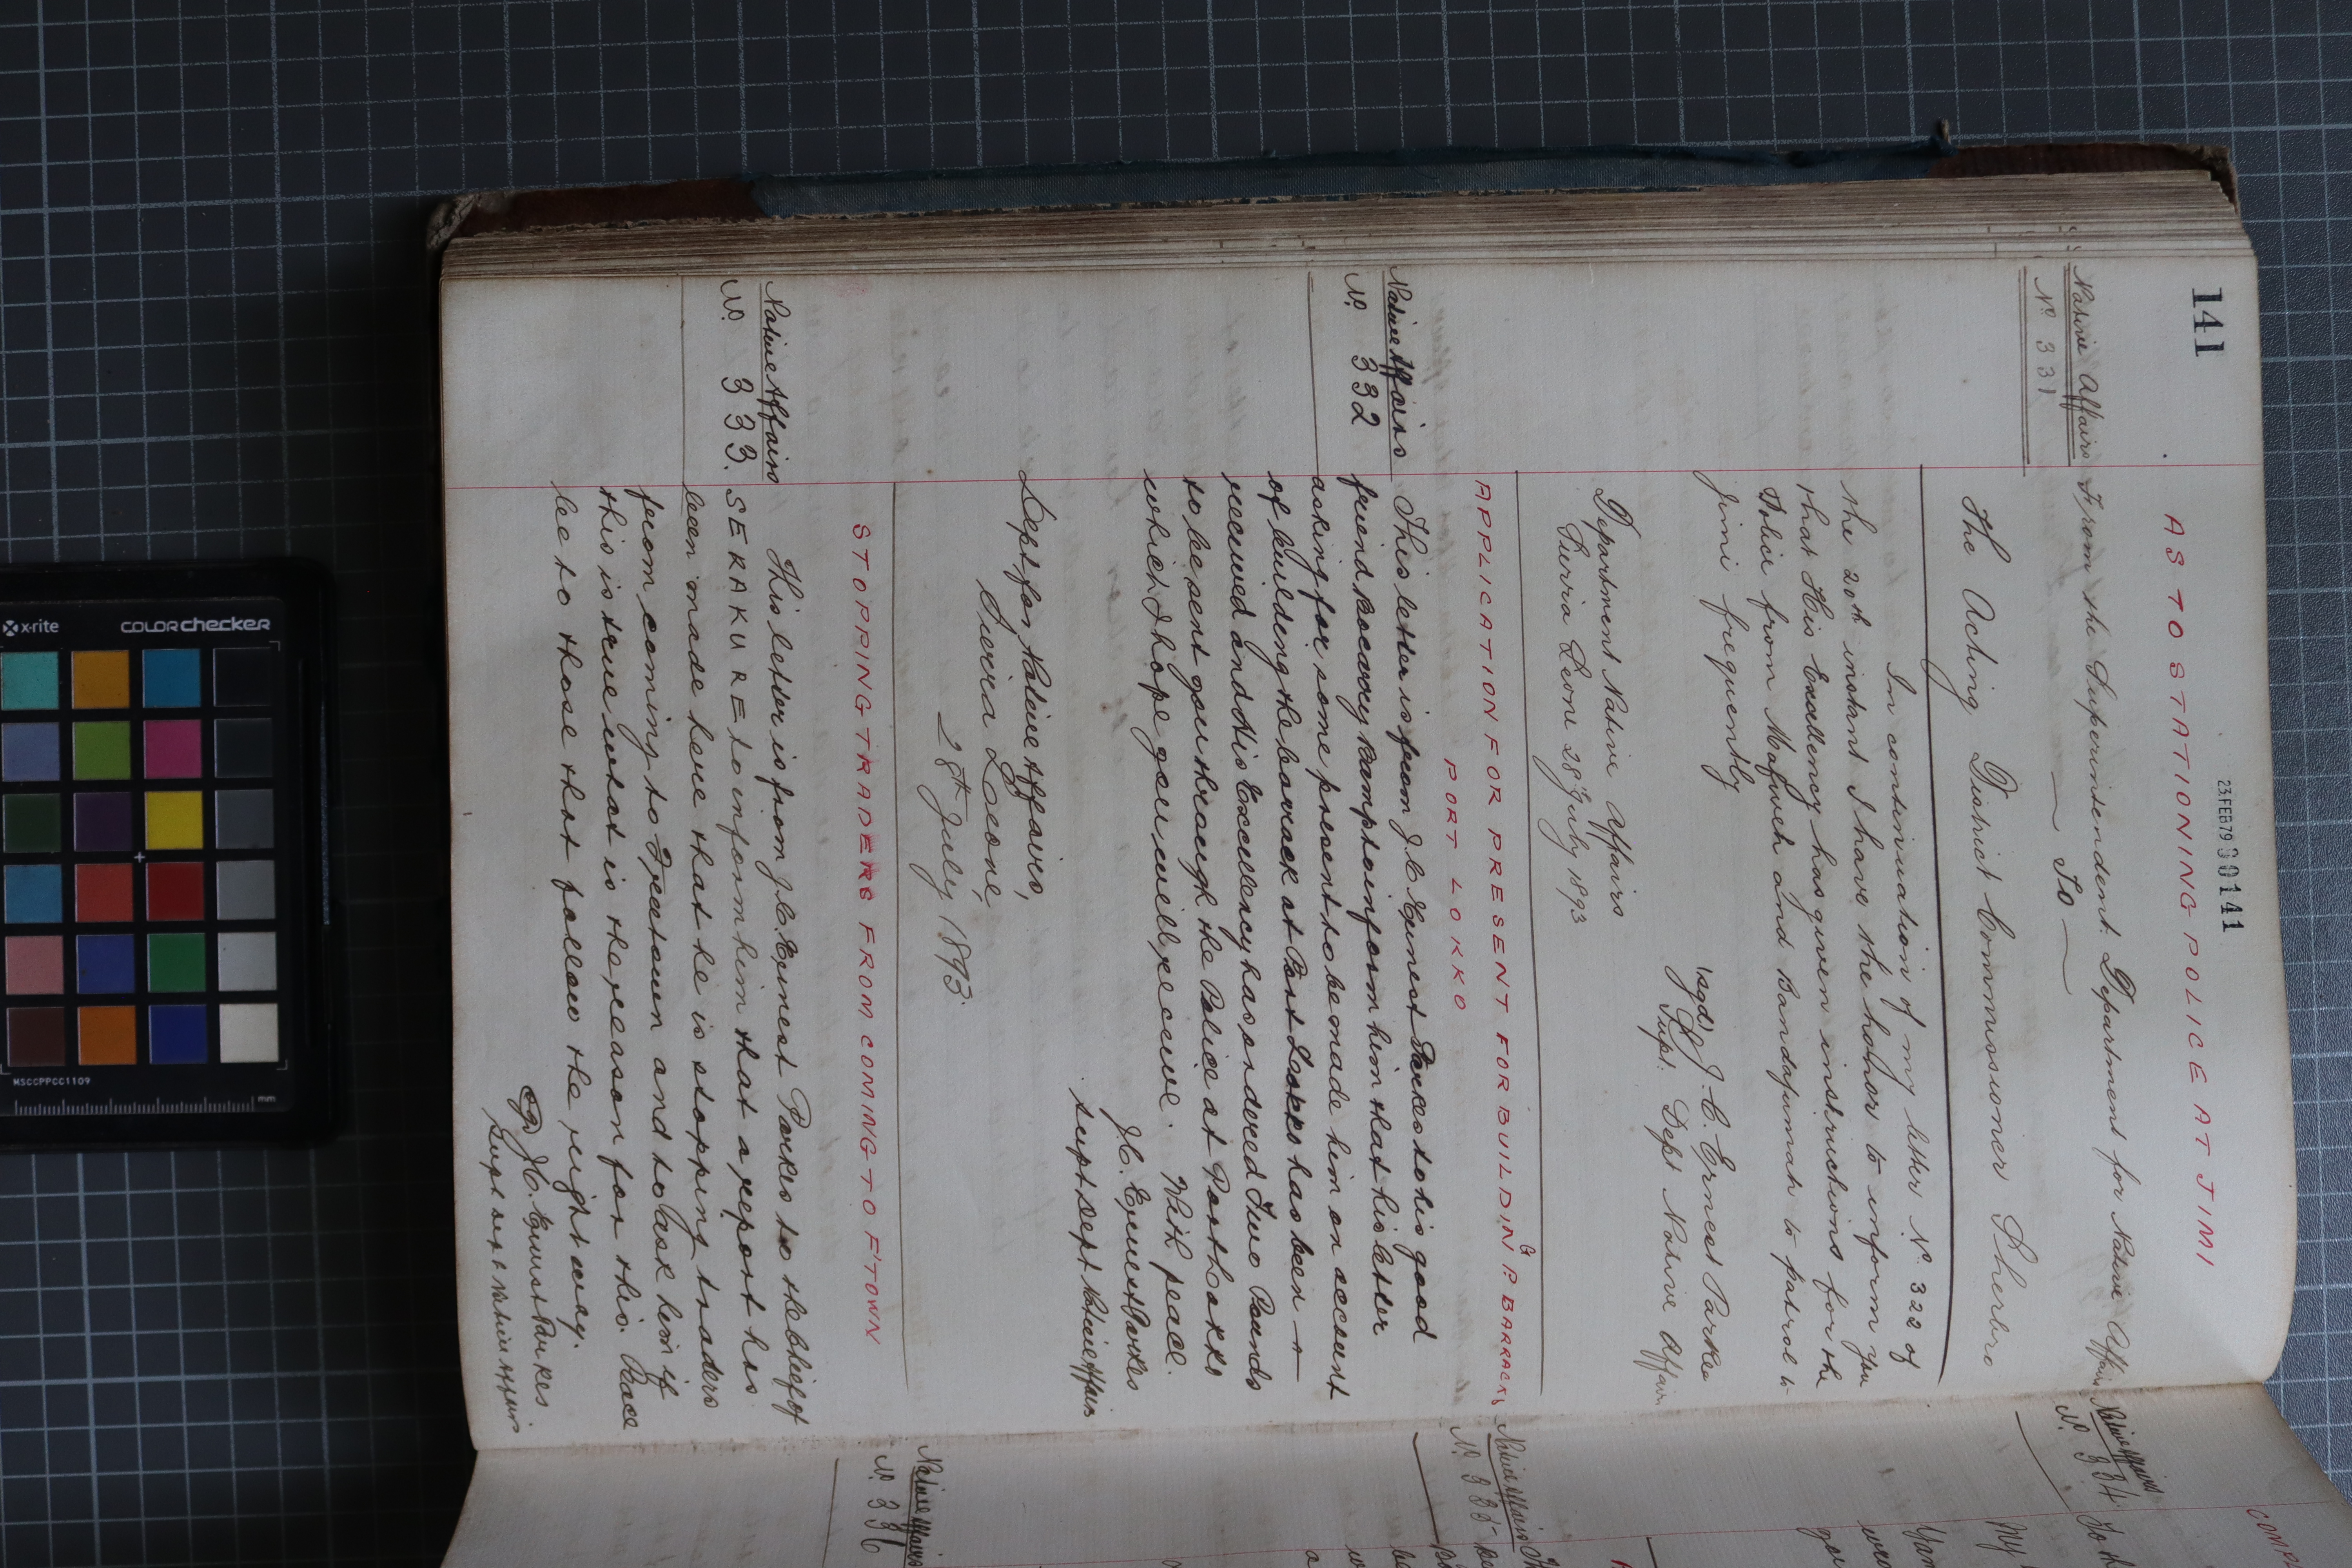 141
23 FEB 79 00141
AS TO STATIONING POLICE AT JIMI
Native Affairs
No. 331
From the Superintendent Department for Native Affairs
To
The Acting District Commissioner Sherbro
In continuation of my letter No. 322 of
the 20th instant I have the honor to inform you
that His Excellency has given instructions for the
Police from Mafweh and Bandajumah to patrol to
Jimi frequently
(sgd) J. C. Ernest Parkes
Supt. Dept Native Affairs
Department Native Affairs
Sierra Leone 28th July 1893
APPLICATION FOR PRESENT FOR BUILDING P. BARRACKS
PORT LOKKO
Native Affairs
No. 332
This letter is from J. C. Ernest Parkes to his good
friend Bocarry Bamp to inform him that his letter
asking for some present to be made him on account
of building the barrack at Port Lokko has been
received and His Excellency has ordered Two Pounds
to be sent you through the Police at Port Lokko
which I hope you will receive. With peace.
J. C. Ernest Parkes
Supt Dept Native Affairs
Dept for Native Affairs,
Sierra Leone,
28th July 1893
STOPPING TRADERS FROM COMING TO F'TOWN
Native Affairs
No. 333.
This letter is from J. C. Ernest Parkes to the chief of
SERAKURE to inform him that a report has
been made here that he is stopping traders
from coming to Freetown and to ask him if
this is true what is the reason for this. Peace
be to those that follow the right way.
J. C. Ernest Parkes.
Supt Dept Native Affairs
Native Affairs
No. 334
Native Affairs
No. 335
Native Affairs
No. 336
x-rite
colorchecker
MSCCPPCC1109
mm